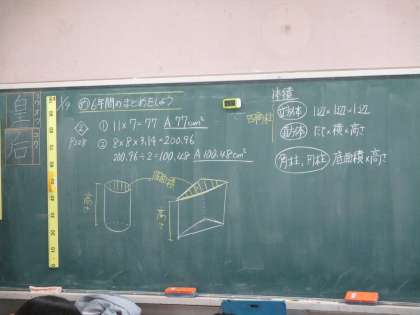 皇后
め 6年間のまとめをしよう
② ① 11×7=77 A 77cm²
② 8×8×3.14=200.96
200.96÷2=100.48 A 100.48cm²
底面積
高さ
高さ
体積
立方体 1辺×1辺×1辺
直方体 たて×横×高さ
四角柱
角柱、円柱 底面積×高さ